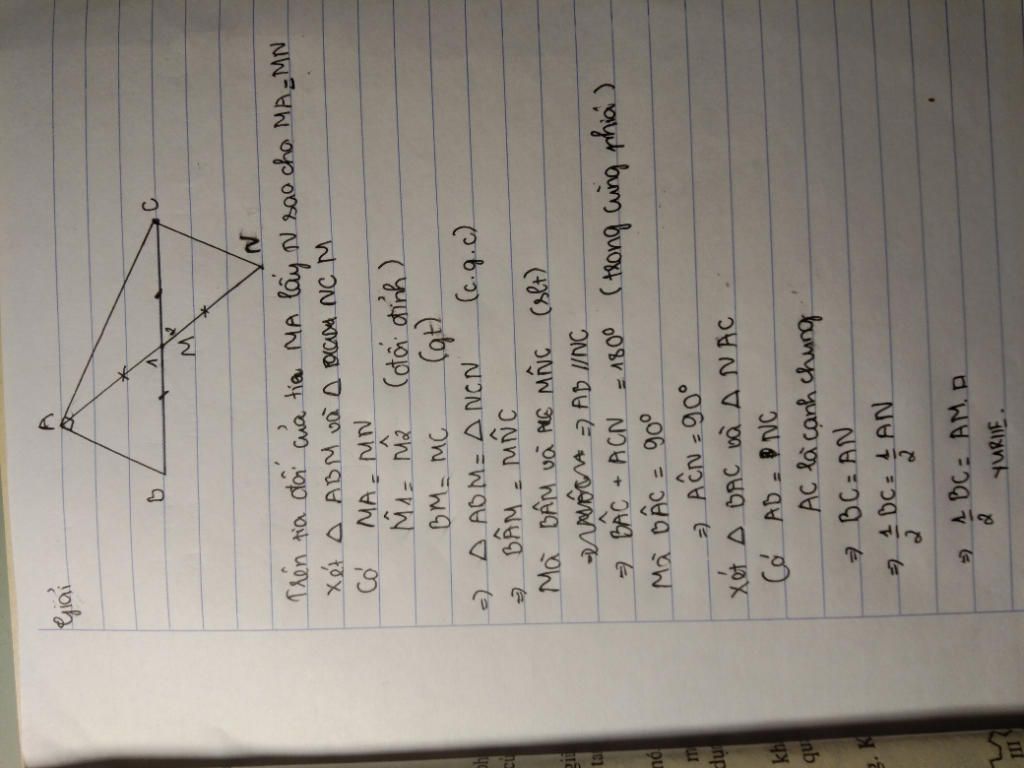 Giải
A
B
C
1
2
M
N
Trên tia đối của tia MA lấy N sao cho MA = MN
Xét △ ABM và △ NC M
Có MA = MN
M̂1 = M̂2 (đối đỉnh)
BM = MC (gt)
⇒ △ ABM = △ NCN (c.g.c)
⇒ BÂM = MN̂C
Mà BÂM và MN̂C (slt)
⇒ AB // NC
⇒ BÂC + ACN = 180° (trong cùng phía)
Mà BÂC = 90°
⇒ AĈN = 90°
Xét △ BAC và △ NAC
Có AB = NC
AC là cạnh chung
⇒ BC = AN
⇒ 1/2 BC = 1/2 AN
⇒ 1/2 BC = AM.
YURIE.